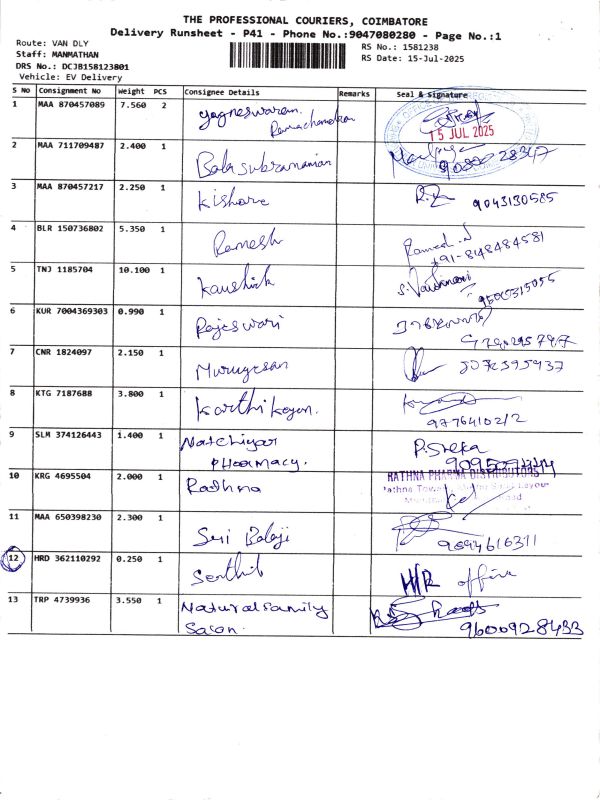 THE PROFESSIONAL COURIERS, COIMBATORE
Delivery Runsheet - P41 - Phone No.:9047080280 - Page No.:1
Route: VAN DLY
RS No.: 1581238
Staff: MANMATHAN
RS Date: 15-Jul-2025
DRS No.: DCJB158123801
Vehicle: EV Delivery
S No Consignment No Weight PCS Consignee Details Remarks Seal & Signature
1 MAA 870457089 7.560 2 Yogneswaran
Ramachandran
15 JUL 2025
2 MAA 711709487 2.400 1 Balasubramanian
3 MAA 870457217 2.250 1 Kishore 9043130585
4 BLR 150736802 5.350 1 Ramesh
+91-8148484581
5 TNJ 1185704 10.100 1 Kaushik
6 KUR 7004369303 0.990 1 Rajeswari
7 CNR 1824097 2.150 1 Murugesan
8 KTG 7187688 3.800 1 Karthikeyan.
9 SLM 374126443 1.400 1 Natchiyar P.Sreka
PHarmacy.
10 KRG 4695504 2.000 1 Rathna RATHNA PHARMA DISTRIBUTORS
11 MAA 650398230 2.300 1 Sri Balaji
9894616311
12 HRD 362110292 0.250 1 Senthil H/R office
13 TRP 4739936 3.550 1 Natural Family
Salon. 9600928433